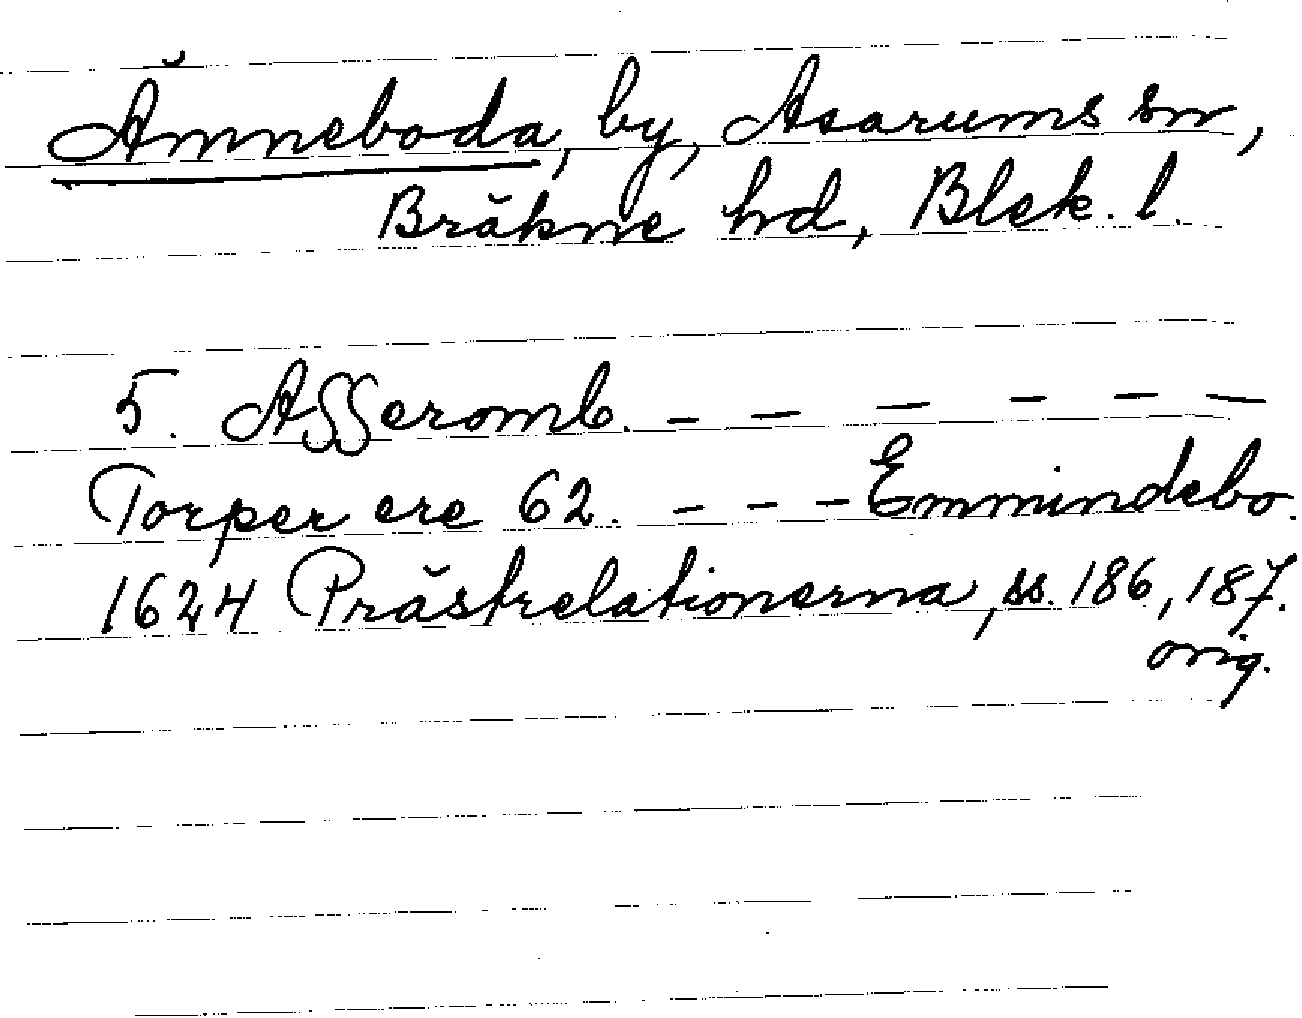 Ämneboda, by, Asarums sn,
Bräkne hd, Blek. l.
5. Asseromb. - - - - - -
Torper ere 62. - - - Emmindebo.
1624 Prästrelationerna, ss. 186, 187.
orig.